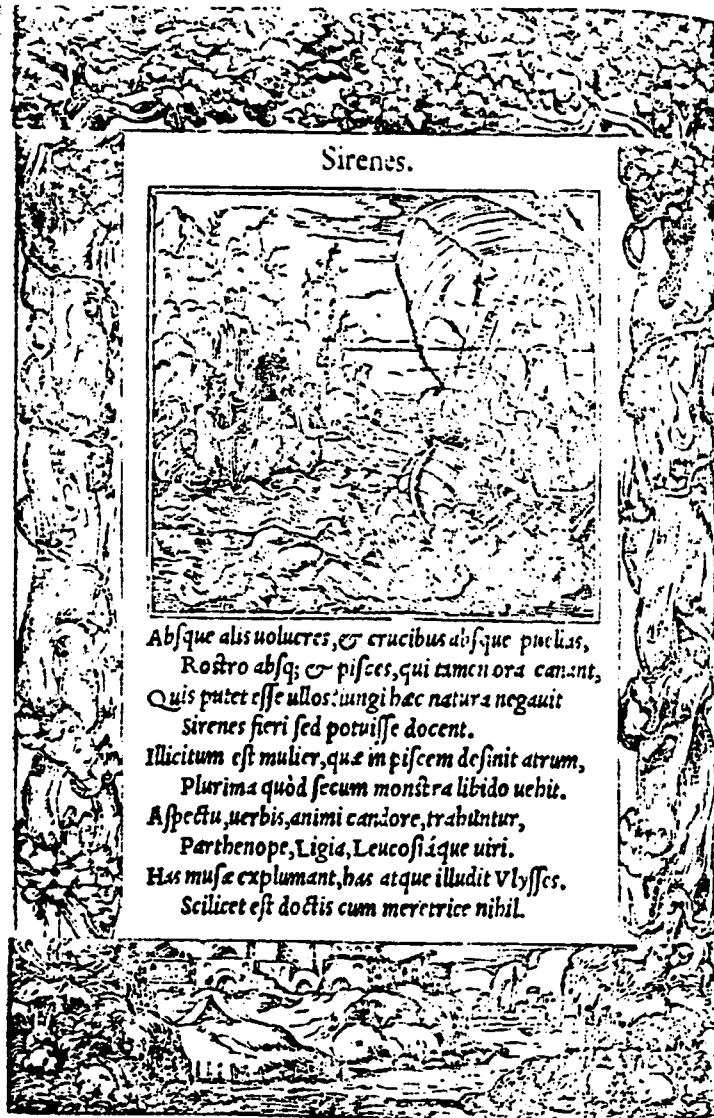 Sirenes.
Abſque alis uolucres, & crucibus abſque puellas,
Roſtro abſq; & piſces, qui tamen ora canant,
Quis putet eſſe ullos? iungi hæc natura negauit
Sirenes fieri ſed potuiſſe docent.
Illicitum eſt mulier, quæ in piſcem deſinit atrum,
Plurima quòd ſecum monſtra libido uehit.
Aſpectu, uerbis, animi candore, trahuntur,
Parthenope, Ligia, Leucoſiáque uiri.
Has muſæ explumant, has atque illudit Vlyſſes.
Scilicet eſt doctis cum meretrice nihil.